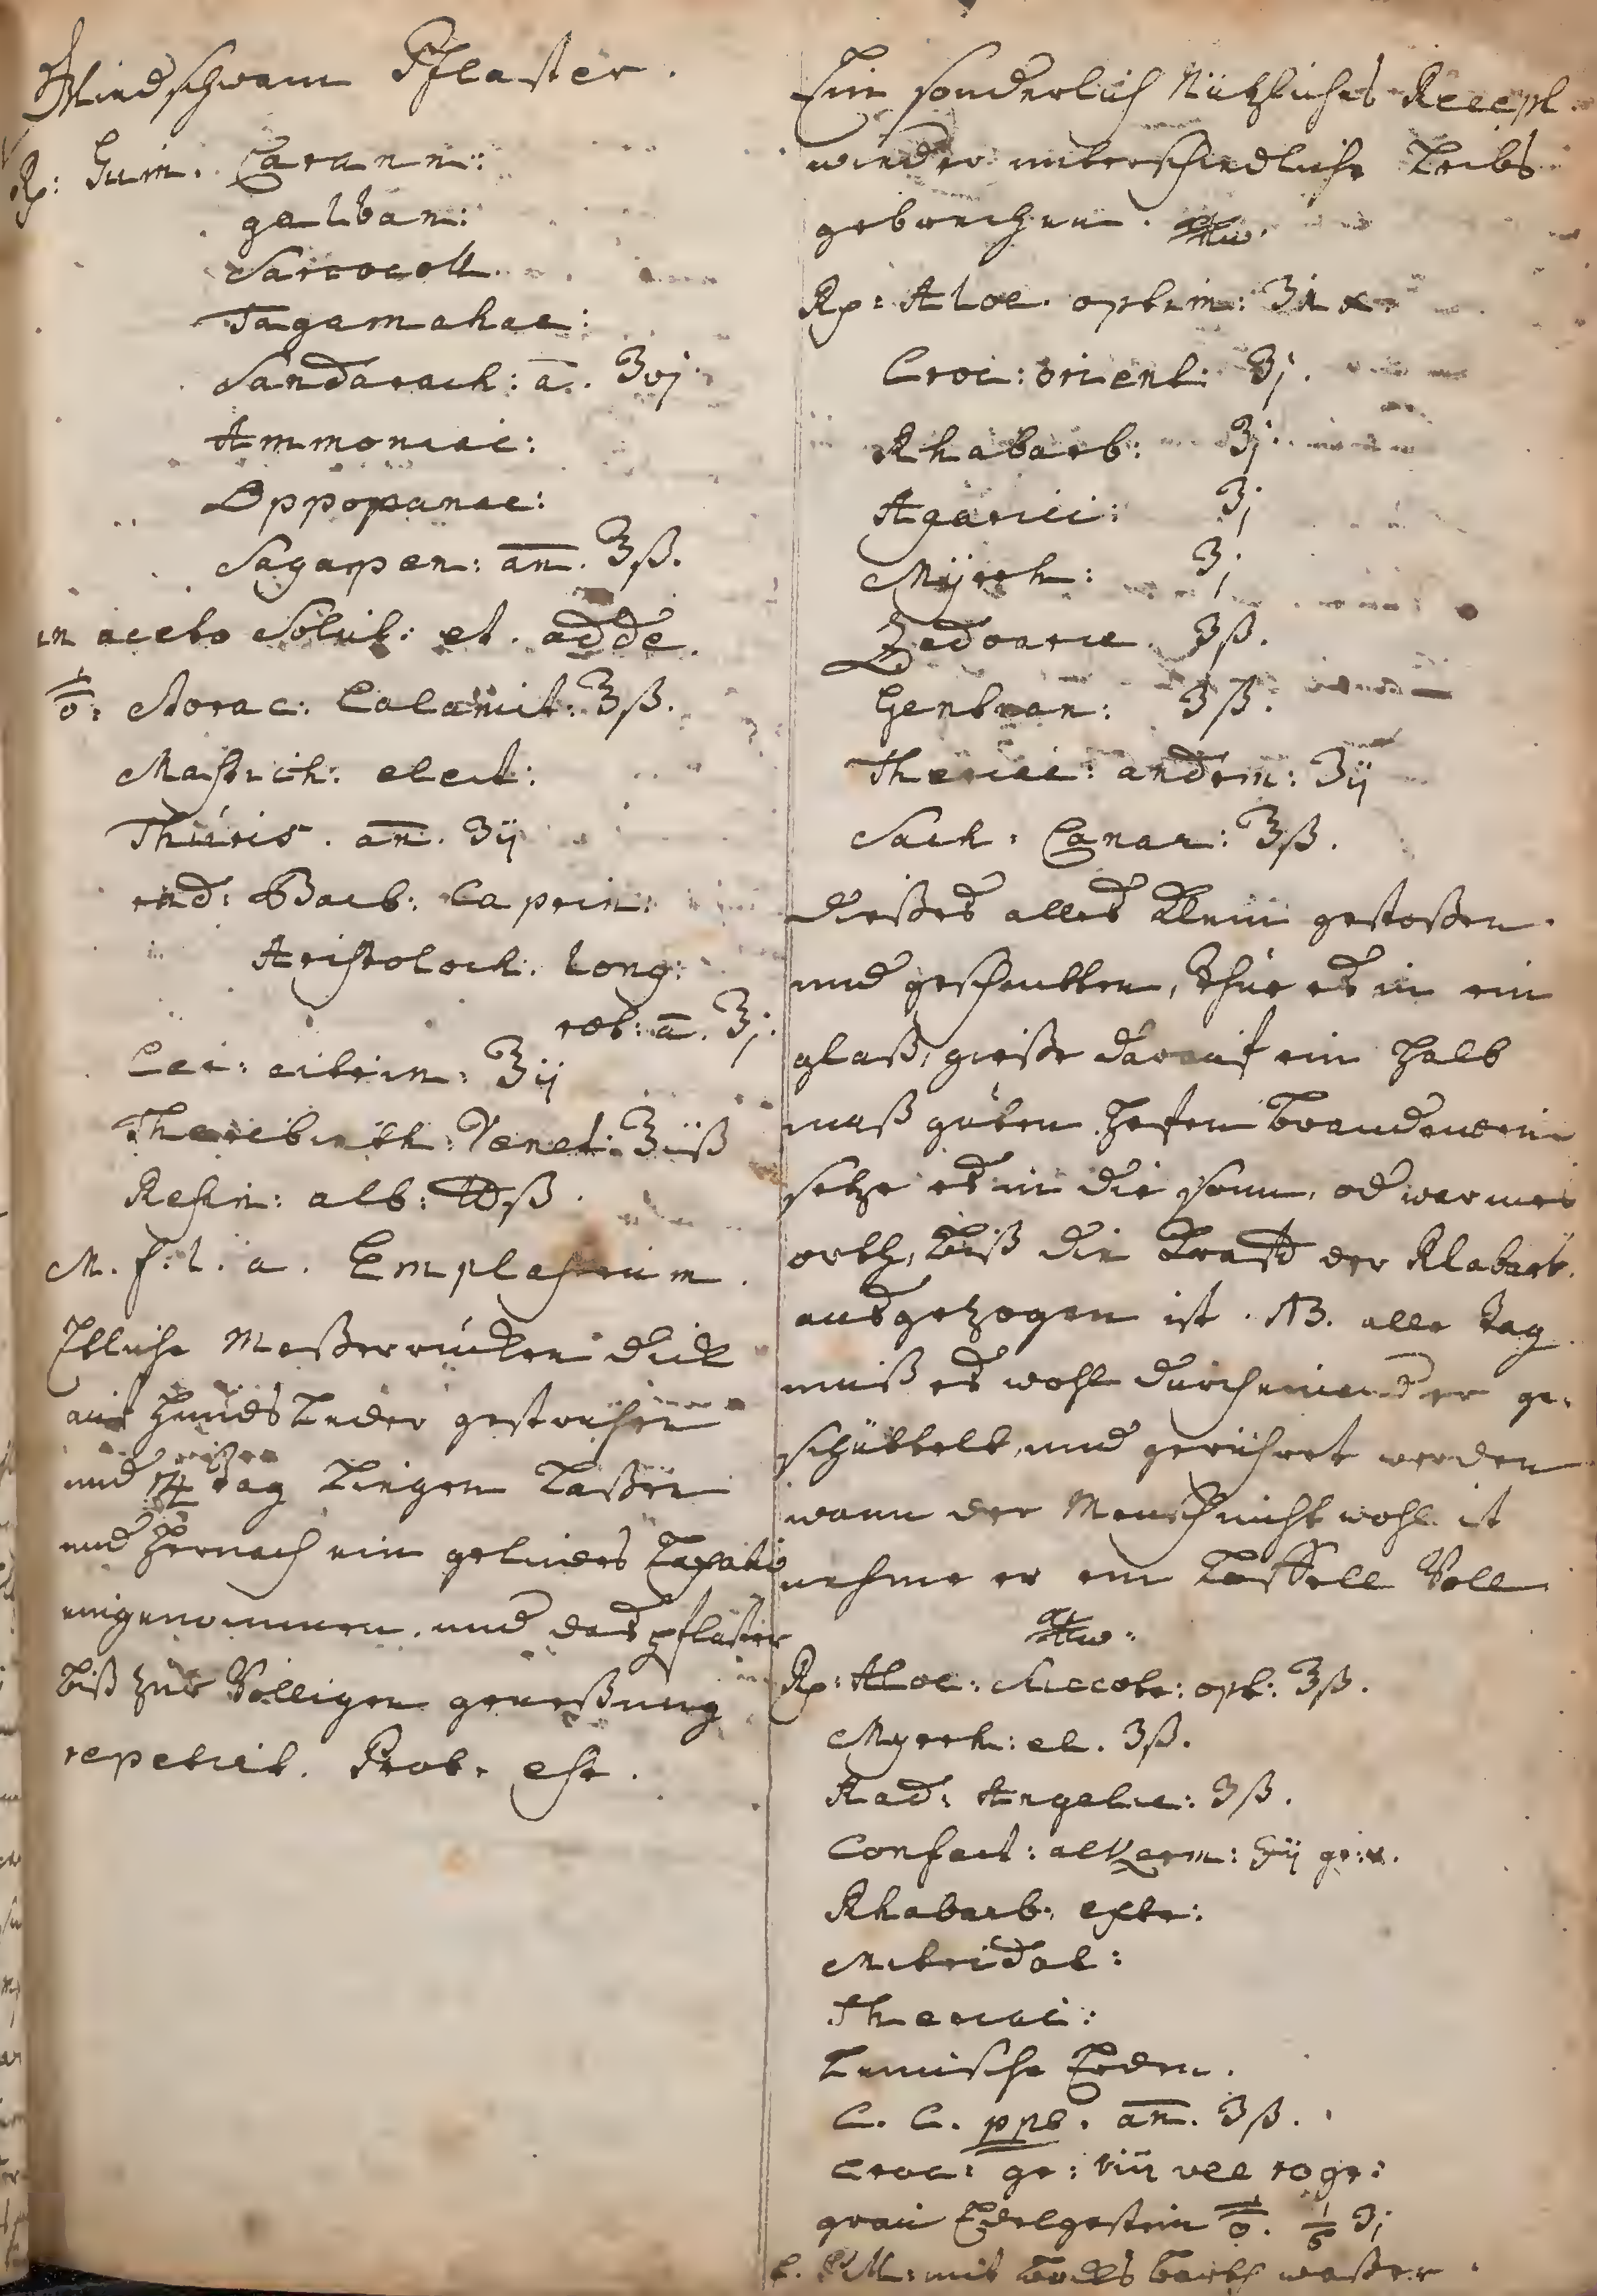 Gliedschwam Pflaster.
Rp: Gum. Carann:
galban:
Sarcocoll.
Tagamahac:
Sandarach: a. ʒvj
Ammoniac:
Oppopanac:
Sagapen: an. ʒß.
in aceto Solut: et. adde.
Storac: Calamit: ʒß.
Mastich: elect:
Thuris. an. ʒij
rad: Barb: Caprin:
Aristoloch. long:
rot: a. ʒj.
Cer: citrin: ʒij
Therebinth: Venet: ʒiiß
Resin: alb: ℔ß.
M. f. l. a. Emplastrum.
Etliche Meßerrücken dick
auf hundsleder gestrichen
und 14 tag liegen laßen
und hernach ein gelindes Laxativ
eingenommen. und das pflaster
biß zur Völligen geneßung
repetirt. Prob. est.
Ein sonderlich Nützliches Recept.
wieder unterschiedliche Leibs
gebrechen.
Rp: Aloe. optim:
Croc: orient: ʒj.
Rhabarb: ʒj.
Agarici: ʒj
Myrrh: ʒj
Zedoarie. ʒß.
Gentian: ʒß.
Theriac: androm: ʒij
Sach: Canar: ʒß.
dießes alles klein gestoßen.
und geschnitten, thue es in ein
glaß, gieße darauf ein halb
maß guten hefen brandewein
setze es in die sonn, od warmes
orth, biß die Krafft der Rhabarb.
ausgezogen ist. NB. alle tag
muß es wohl durcheinander ge-
schüttelt, und gerühret werden
wann der Mensch nicht wohl ist
nehme er ein Löffell Voll
Rp: Aloe: Succotr: opt: ʒß.
Myrrh: el. ʒß.
Rad: Angelic: ʒß.
Confect: alkerm: ʒij gr:v.
Rhabarb. extr:
Mitridat:
Theriac:
Lemische Erden.
C. C. ppt. an. ʒß.
Croc: gr: viii vel 10 gr:
E. M: mit bocks barth waßer.